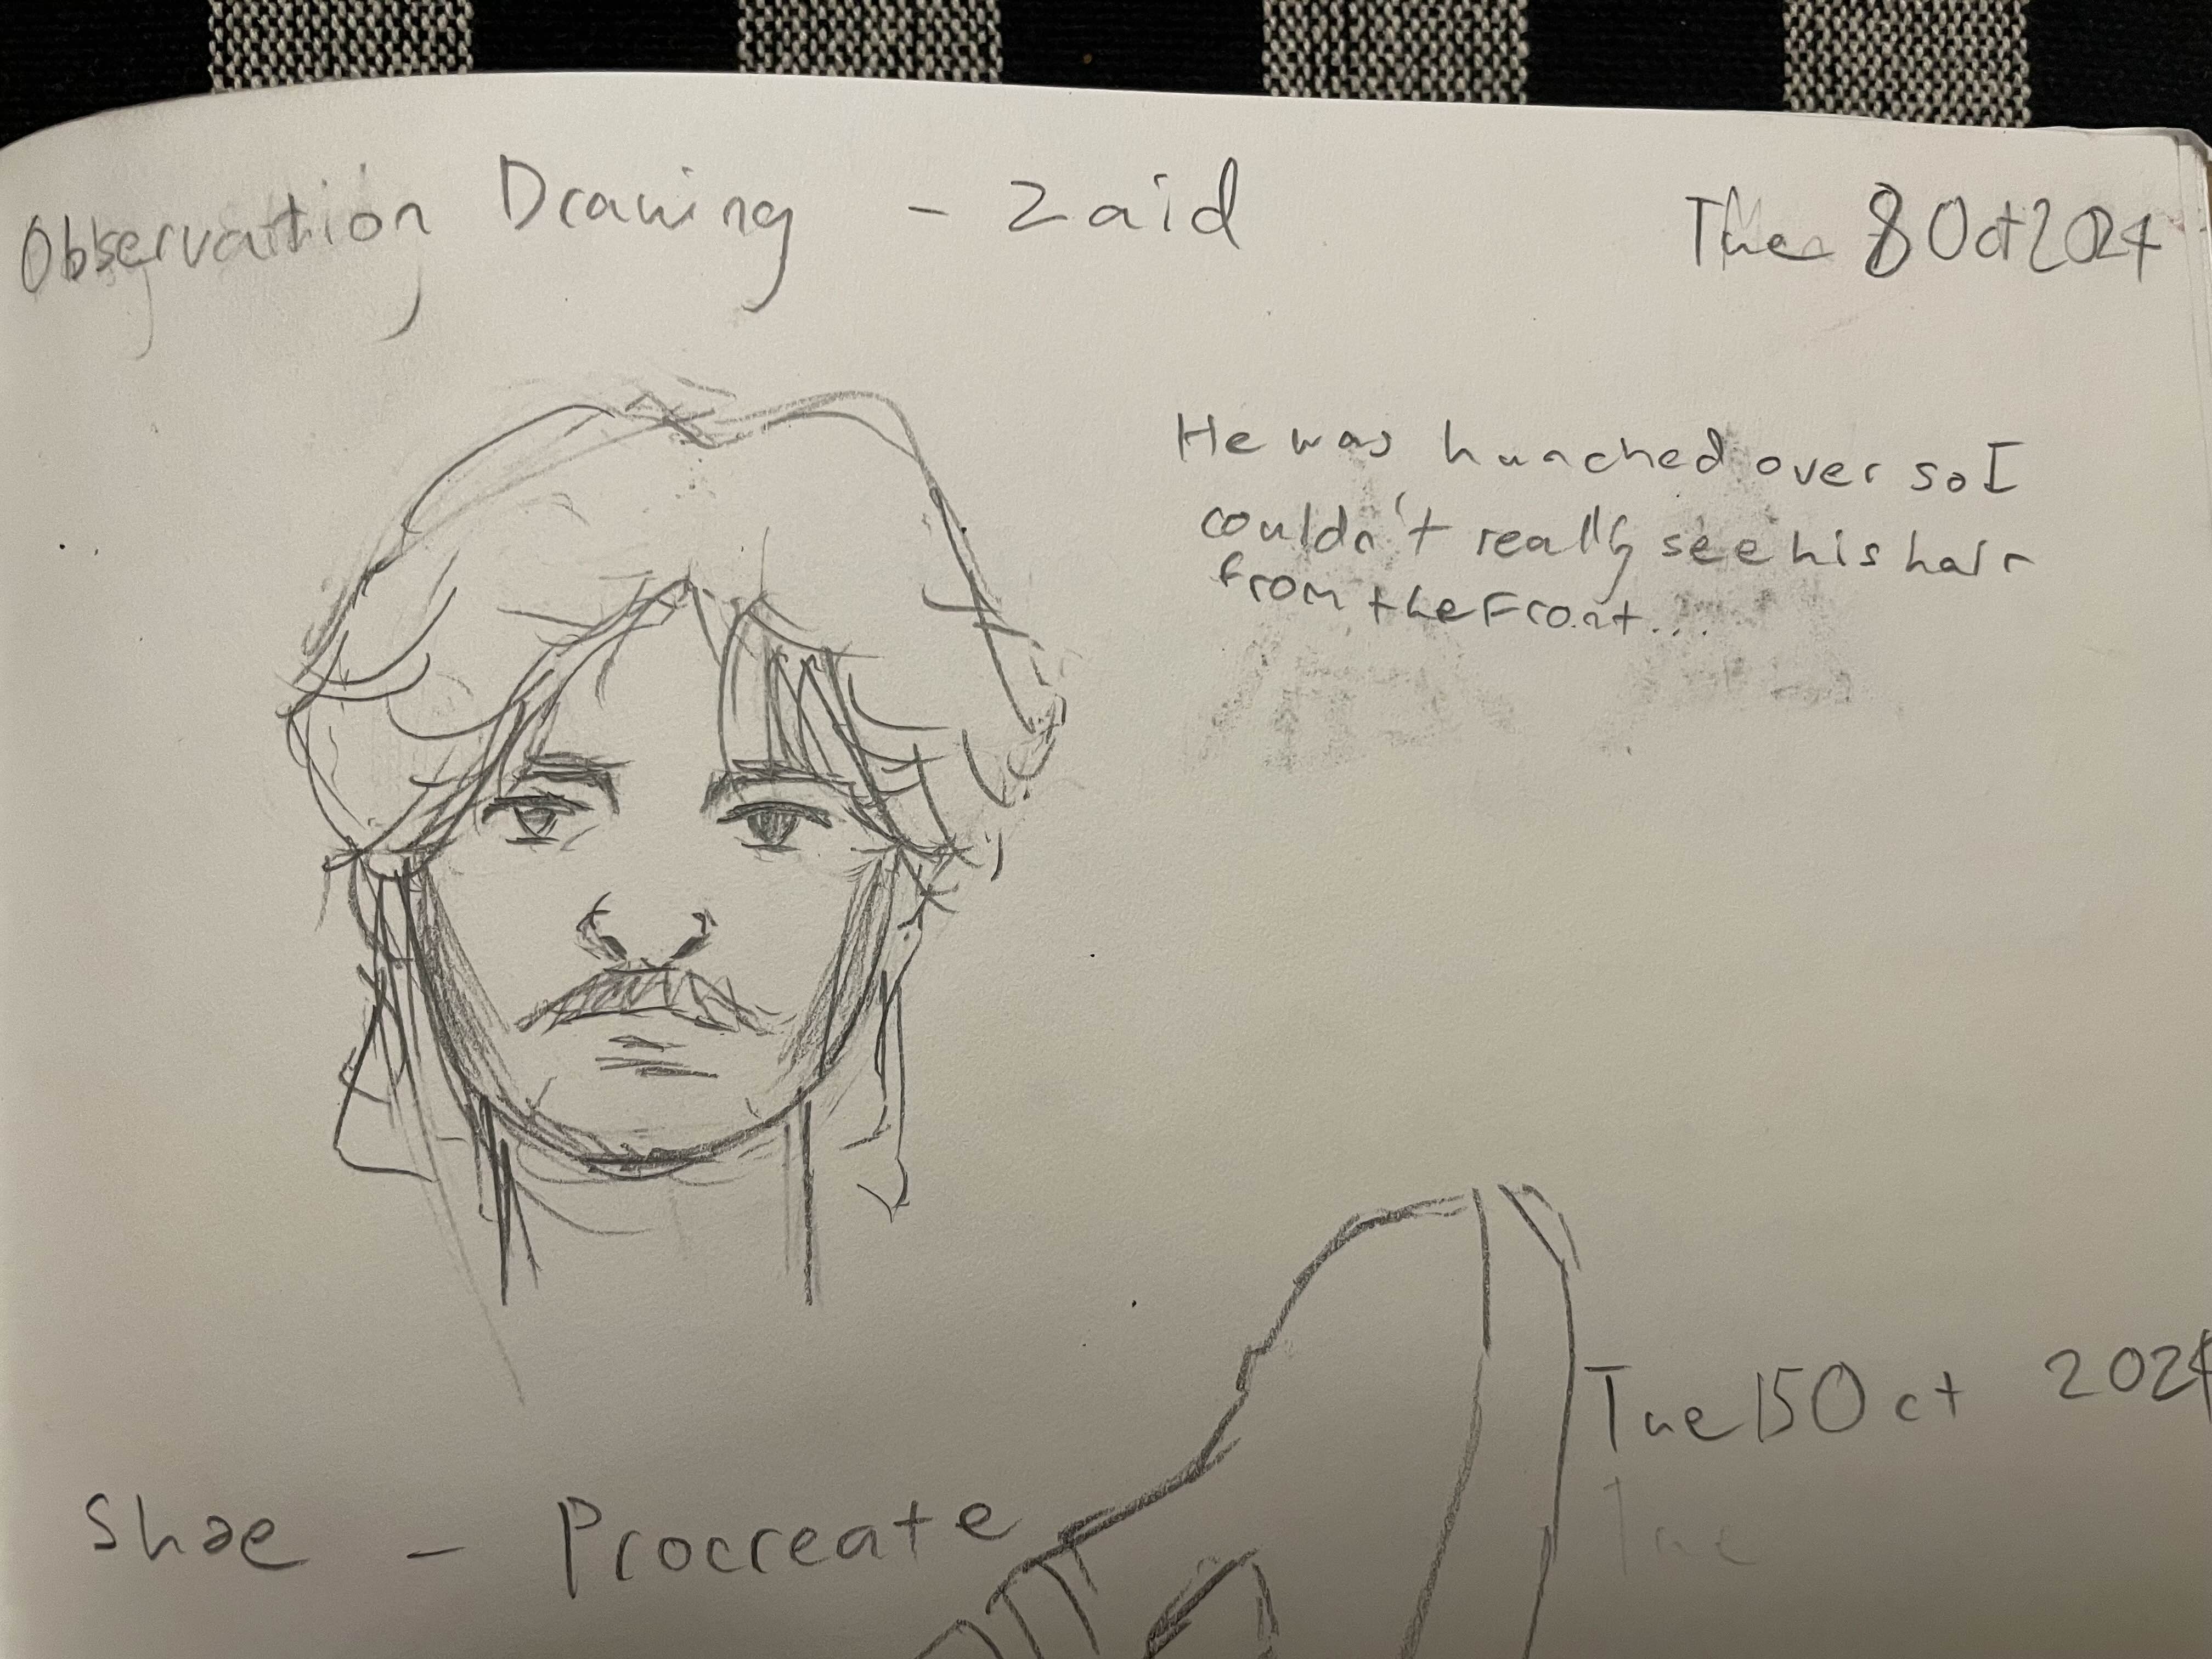 Observation Drawing - Zaid
Tue 8 Oct 2024
He was hunched over so I
couldn't really see his hair
from the front...
Tue 15 Oct 2024
Tue
Shoe - Procreate